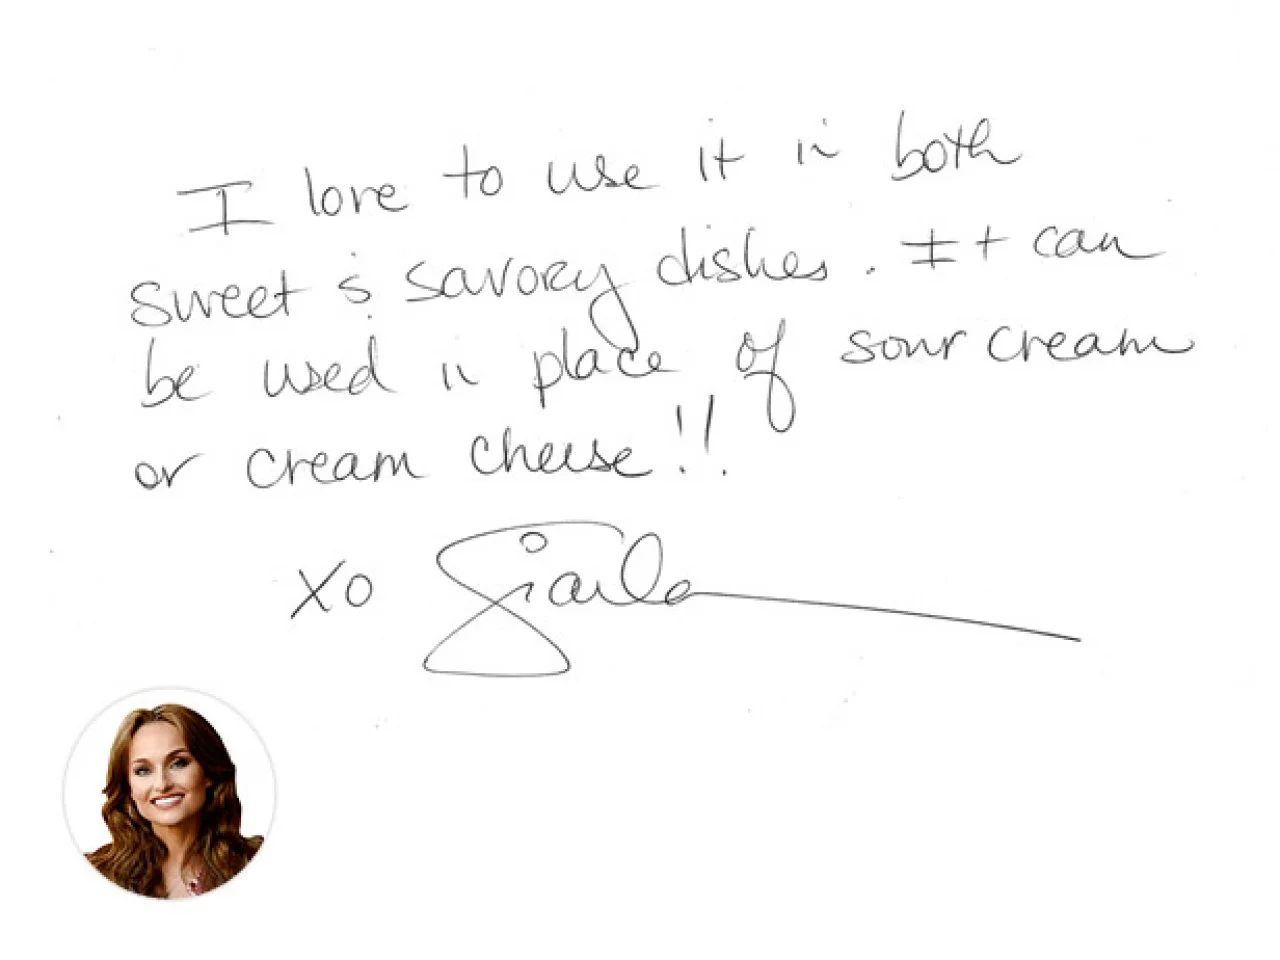 I love to use it in both
sweet & savory dishes. It can
be used in place of sour cream
or cream cheese!!
xo Giada